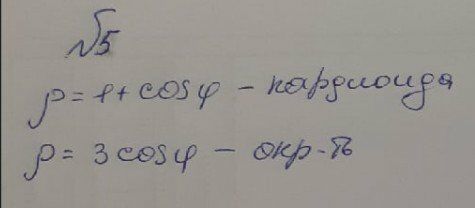 №5
ρ = 1 + cos φ – кардиоида
ρ = 3 cos φ – окр-ть